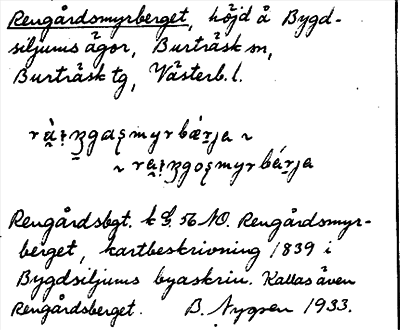 Rengårdsmyrberget, höjd å Bygd-
siljums ägor, Burträsk sn,
Burträsk tg, Västerb. l.
Rengårdsbgt. k G. 56 NO. Rengårdsmyr-
berget, kartbeskrivning 1839 i
Bygdsiljums byaskrin. Kallas även
Rengårdsberget. B. Nygren 1933.